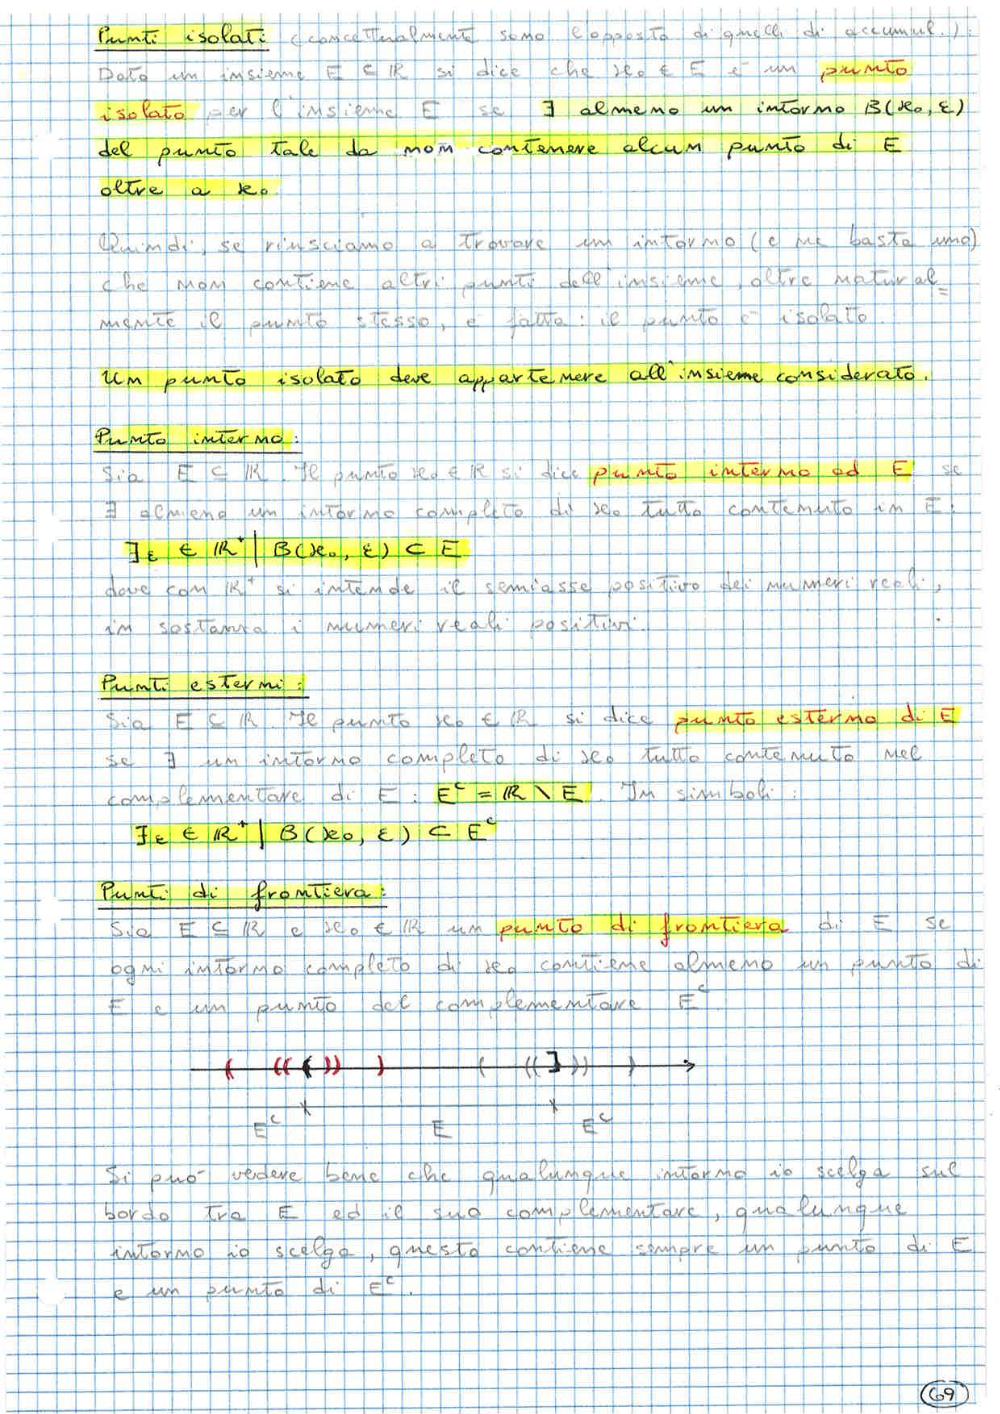 Punti isolati (concettualmente sono l'opposto di quelli di accumul.):
Dato un insieme E ⊆ ℝ si dice che x₀ ∈ E è un punto
isolato per l'insieme E se ∃ almeno un intorno B(x₀, ε)
del punto tale da non contenere alcun punto di E
oltre a x₀.
Quindi, se riusciamo a trovare un intorno (e ne basta uno)
che non contiene altri punti dell'insieme, oltre natural=
mente il punto stesso, è fatta: il punto è isolato.
Un punto isolato deve appartenere all'insieme considerato.
Punto interno:
Sia E ⊆ ℝ. Il punto x₀ ∈ ℝ si dice punto interno ad E se
∃ almeno un intorno completo di x₀ tutto contenuto in E:
∃ε ∈ ℝ⁺ | B(x₀, ε) ⊂ E
dove con ℝ⁺ si intende il semiasse positivo dei numeri reali,
in sostanza i numeri reali positivi.
Punti esterni:
Sia E ⊆ ℝ. Il punto x₀ ∈ ℝ si dice punto esterno di E
se ∃ un intorno completo di x₀ tutto contenuto nel
complementare di E: Eᶜ = ℝ \ E. In simboli:
∃ε ∈ ℝ⁺ | B(x₀, ε) ⊂ Eᶜ
Punti di frontiera:
Sia E ⊆ ℝ e x₀ ∈ ℝ un punto di frontiera di E se
ogni intorno completo di x₀ contiene almeno un punto di
E e un punto del complementare Eᶜ
( (( ( )) ) ( (( ] )) )
Eᶜ E Eᶜ
Si può vedere bene che qualunque intorno io scelga sul
bordo tra E ed il suo complementare, qualunque
intorno io scelga, questo contiene sempre un punto di E
e un punto di Eᶜ.
69